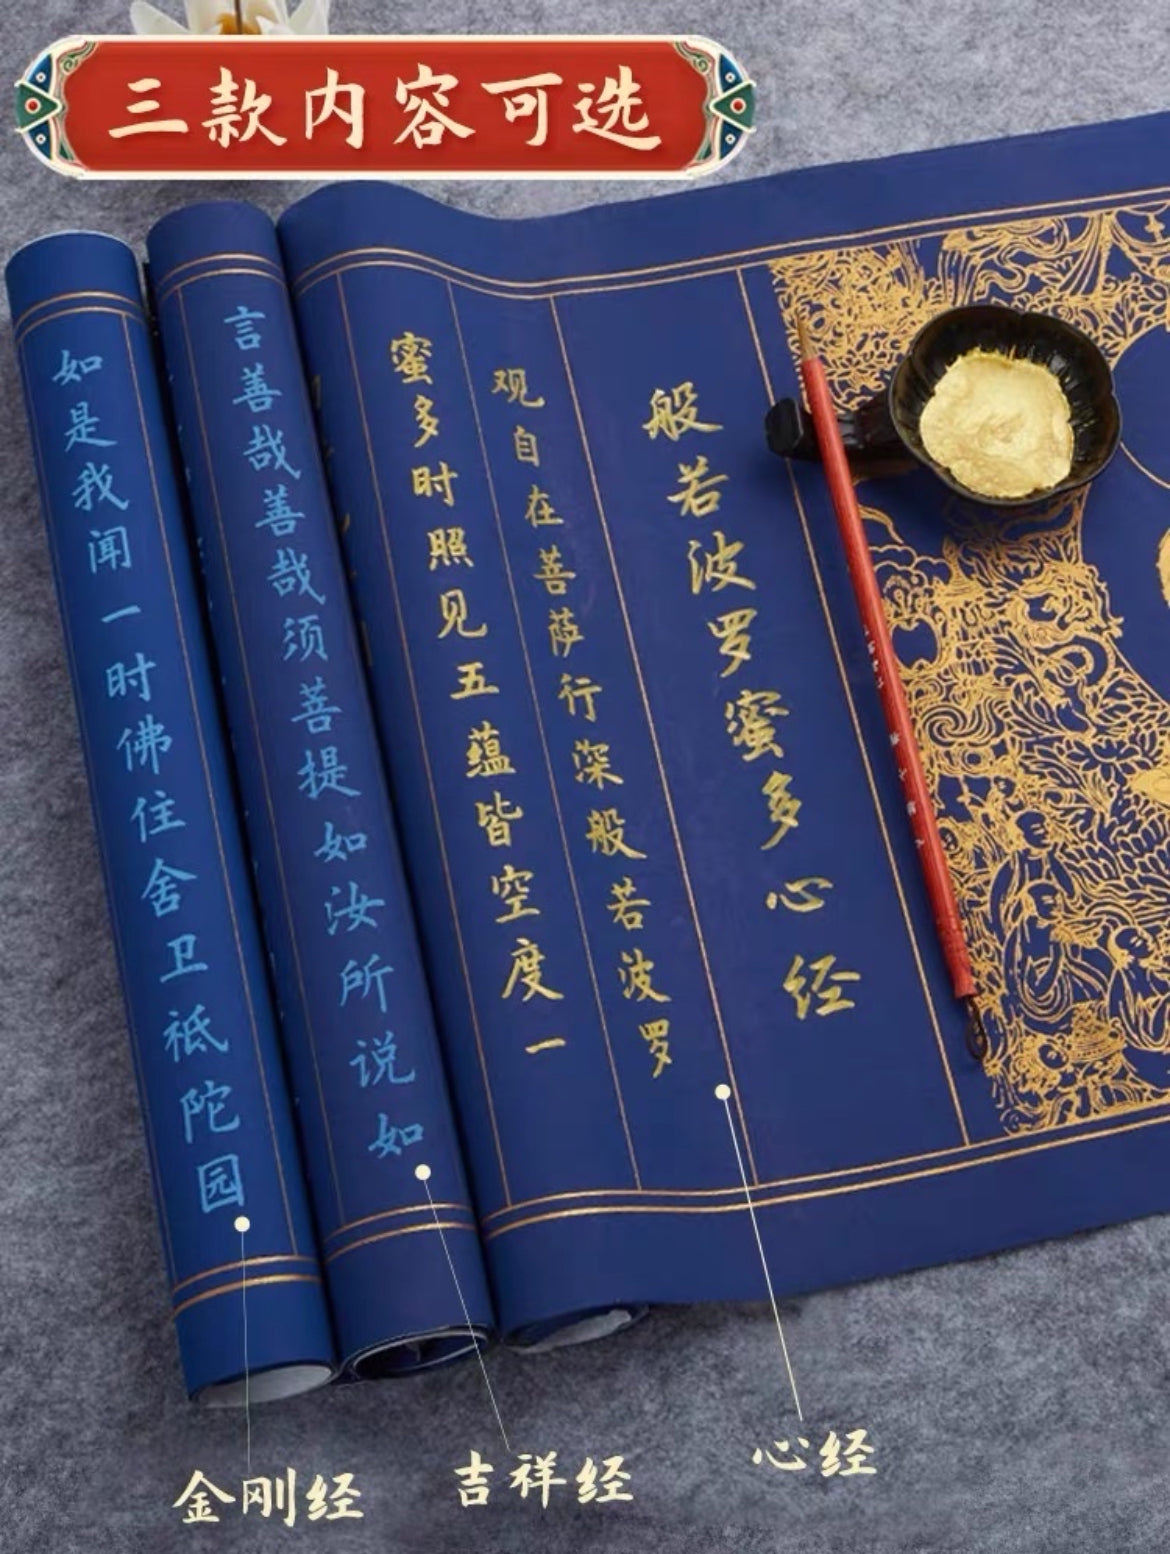 三款内容可选
般若波罗蜜多心经
观自在菩萨行深般若波罗
蜜多时照见五蕴皆空度一
言善哉善哉须菩提如汝所说如
如是我闻一时佛住舍卫祗陀园
金刚经
吉祥经
心经